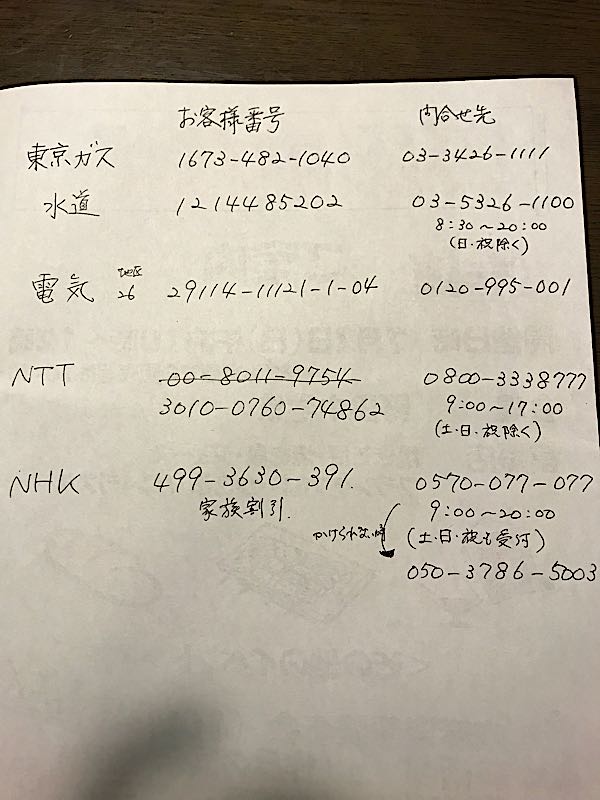 お客様番号 問合せ先
東京ガス 1673-482-1040 03-3426-1111
水道 1214485202 03-5326-1100
8:30~20:00
(日・祝除く)
電気 地区 26 29114-11121-1-04 0120-995-001
NTT 00-8011-9754 0800-3338777
3010-0760-74862 9:00~17:00
(土・日・祝除く)
NHK 499-3630-391. 0570-077-077
家族割引. 9:00~20:00
かけられない時 (土・日・祝も受付)
050-3786-5003